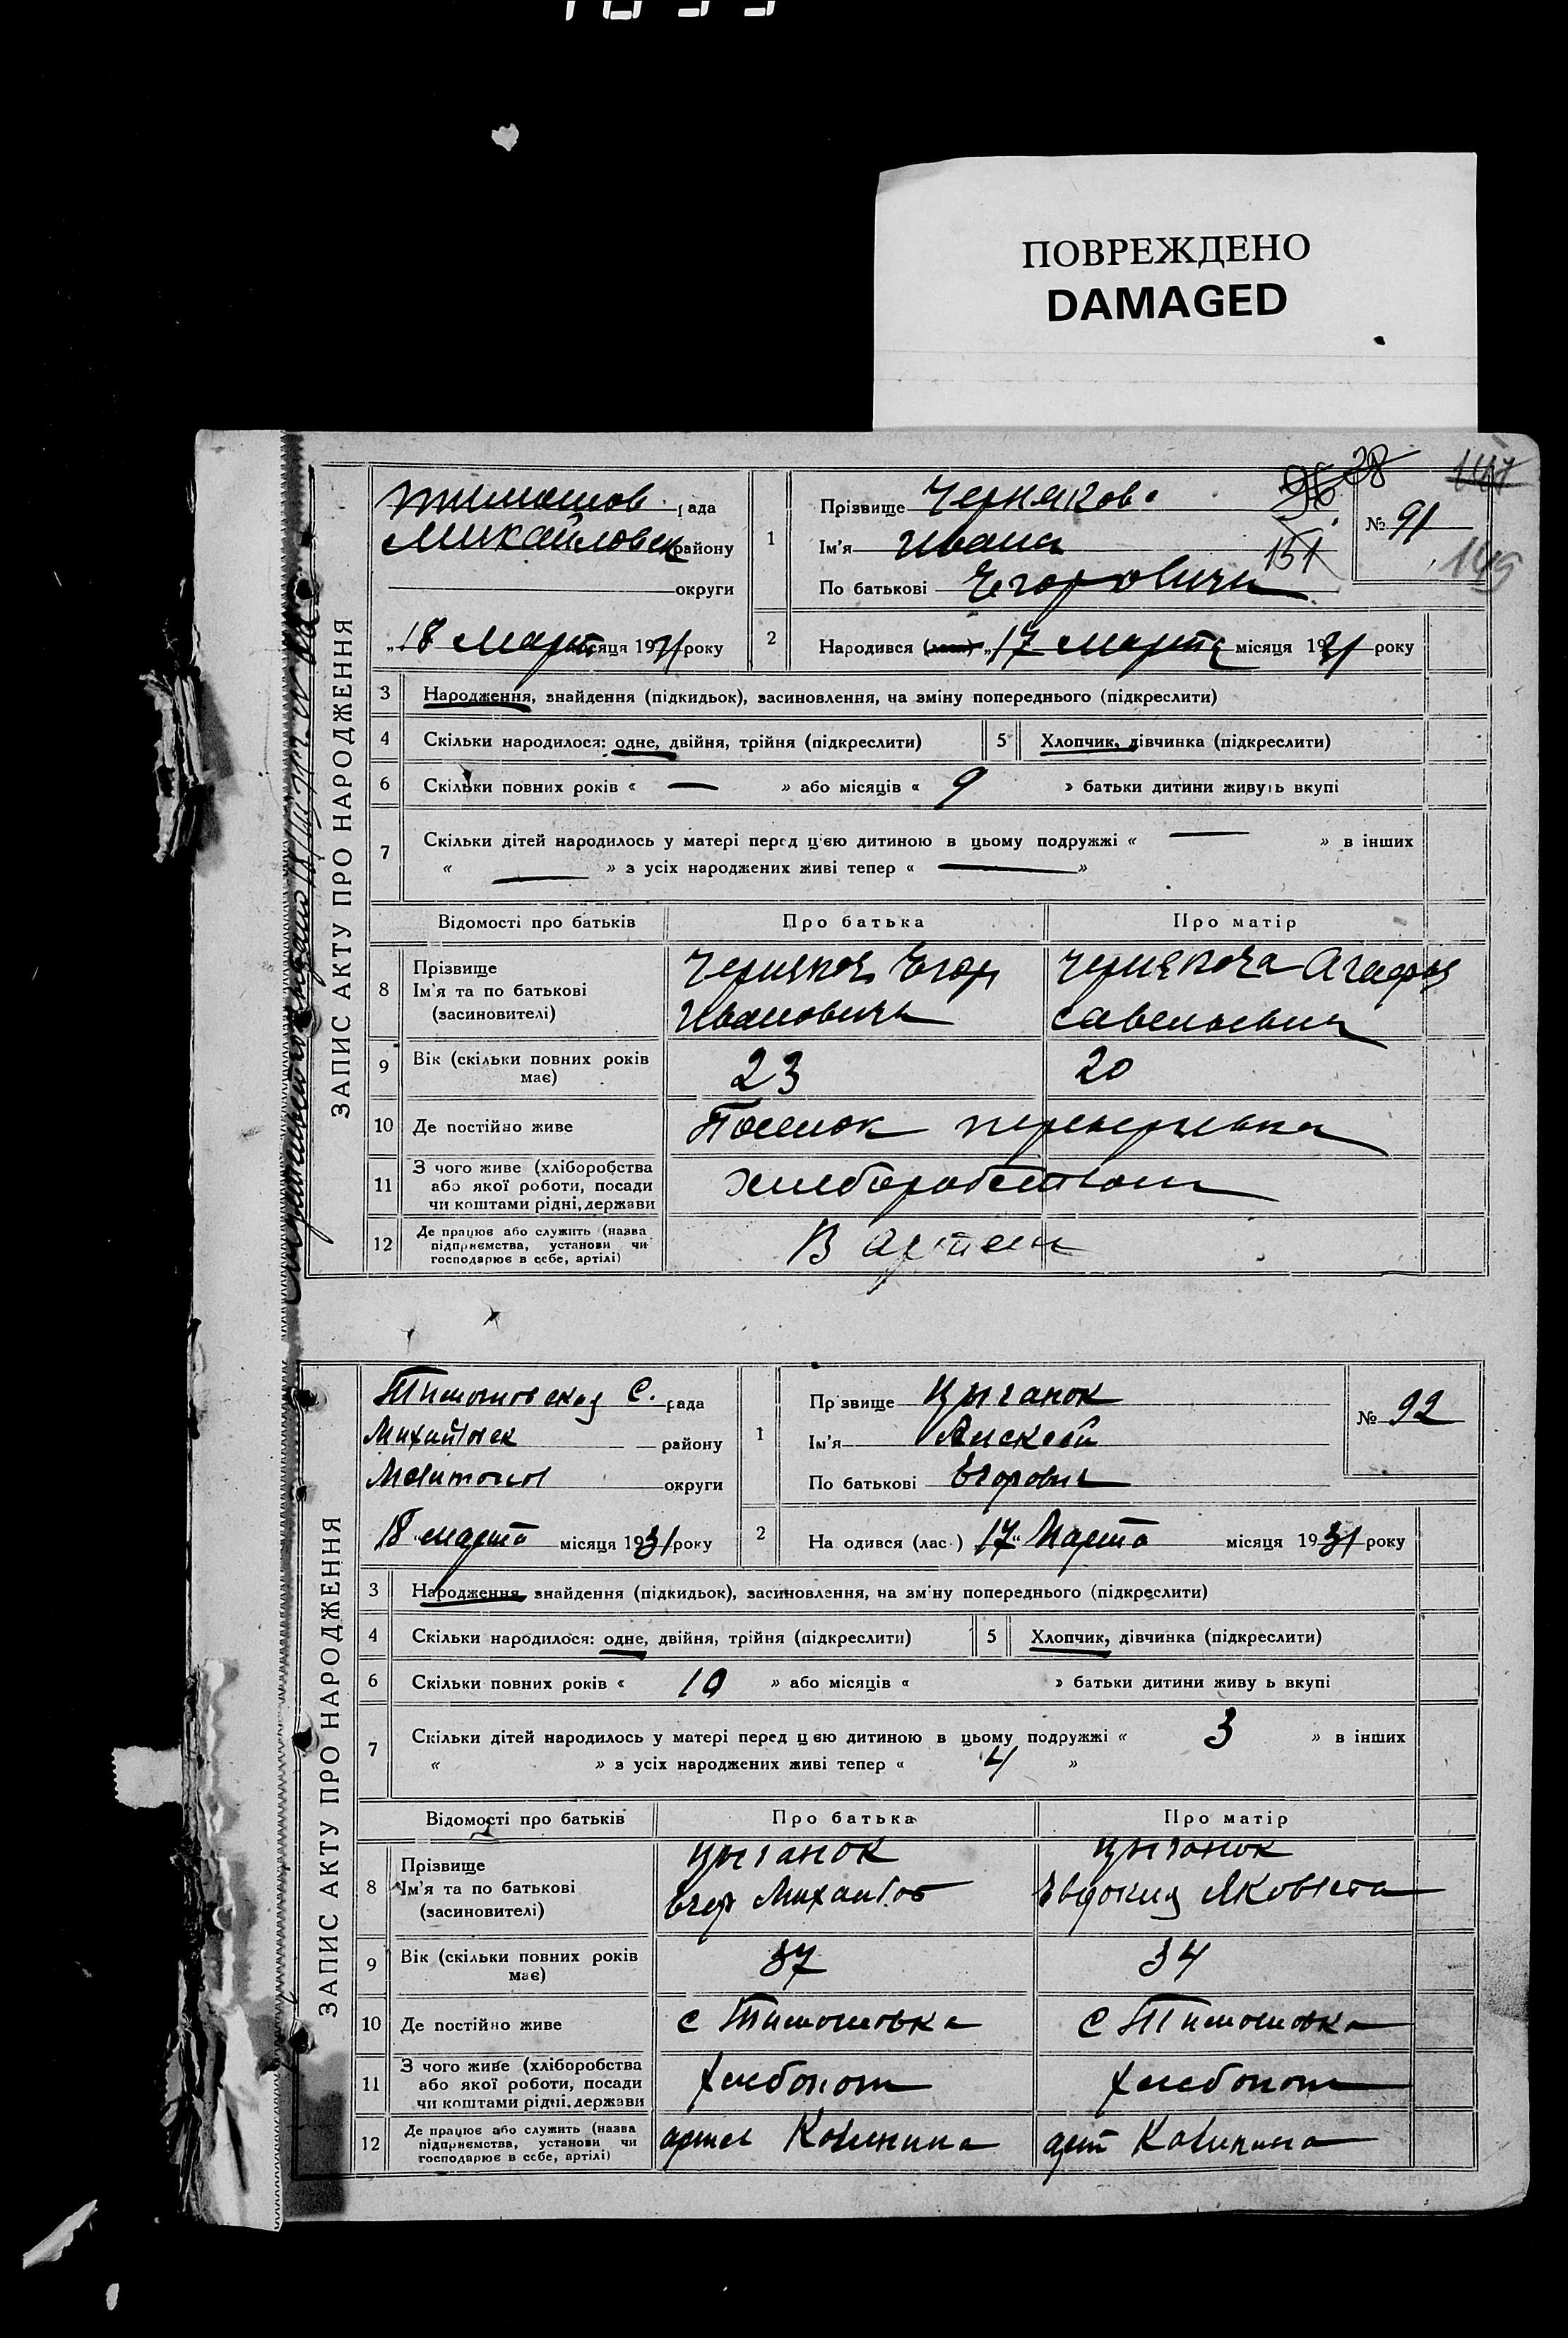 ПОВРЕЖДЕНО
DAMAGED
ЗАПИС АКТУ ПРО НАРОДЖЕННЯ
Тимошов рада
Михайловск району
округи
„18 Марта місяця 1931 року
1
Прізвище Черняков
Ім'я Ивана
По батькові Егоровичь
28
147
№ 91
151
149
2
Народився (ласл) „17 марта місяця 1931 року
3 Народження, знайдення (підкидьок), засиновлення, на зміну попереднього (підкреслити)
4 Скільки народилося: одне, двійня, трійня (підкреслити) 5 Хлопчик, дівчинка (підкреслити)
6 Скільки повних років « — » або місяців « 9 » батьки дитини живуть вкупі
7 Скільки дітей народилось у матері перед цією дитиною в цьому подружжі « — » в інших
« — » з усіх народжених живі тепер « — »
Відомості про батьків Про батька Про матір
8 Прізвище Ім'я та по батькові (засиновителі)
Черняков Егор Ивановичь
Чернякова Агафья Савельевна
9 Вік (скільки повних років має) 23 20
10 Де постійно живе Поселок
11 З чого живе (хліборобства або якої роботи, посади чи коштами рідні, держави
хлеборобством
12 Де працює або служить (назва підприємства, установи чи господарює в себе, артілі)
В артели
ЗАПИС АКТУ ПРО НАРОДЖЕННЯ
Тимошовская С. рада
Михайловск району
Мелитопол округи
18 „марта місяця 1931 року
1
Пр звище Цыганок
Ім'я Алексей
По батькові Егорович
№ 92
2
На одився (лас ) 17 „ Марта місяця 1931 року
3 Народження, знайдення (підкидьок), засиновлення, на зміну попереднього (підкреслити)
4 Скільки народилося: одне, двійня, трійня (підкреслити) 5 Хлопчик, дівчинка (підкреслити)
6 Скільки повних років « 10 » або місяців « » батьки дитини живу ь вкупі
7 Скільки дітей народилось у матері перед цією дитиною в цьому подружжі « 3 » в інших
« » з усіх народжених живі тепер « 4 »
Відомості про батьків Про батька Про матір
8 Прізвище Ім'я та по батькові (засиновителі)
Цыганок Егор Михайлов
Цыганок Евдокия Яковлевна
9 Вік (скільки повних років має) 37 34
10 Де постійно живе с Тимошовка с Тимошовка
11 З чого живе (хліборобства або якої роботи, посади чи коштами рідні, держави
хлебопош хлебопош
12 Де працює або служить (назва підприємства, установи чи господарює в себе, артілі)
артел Калинина арт Калинина